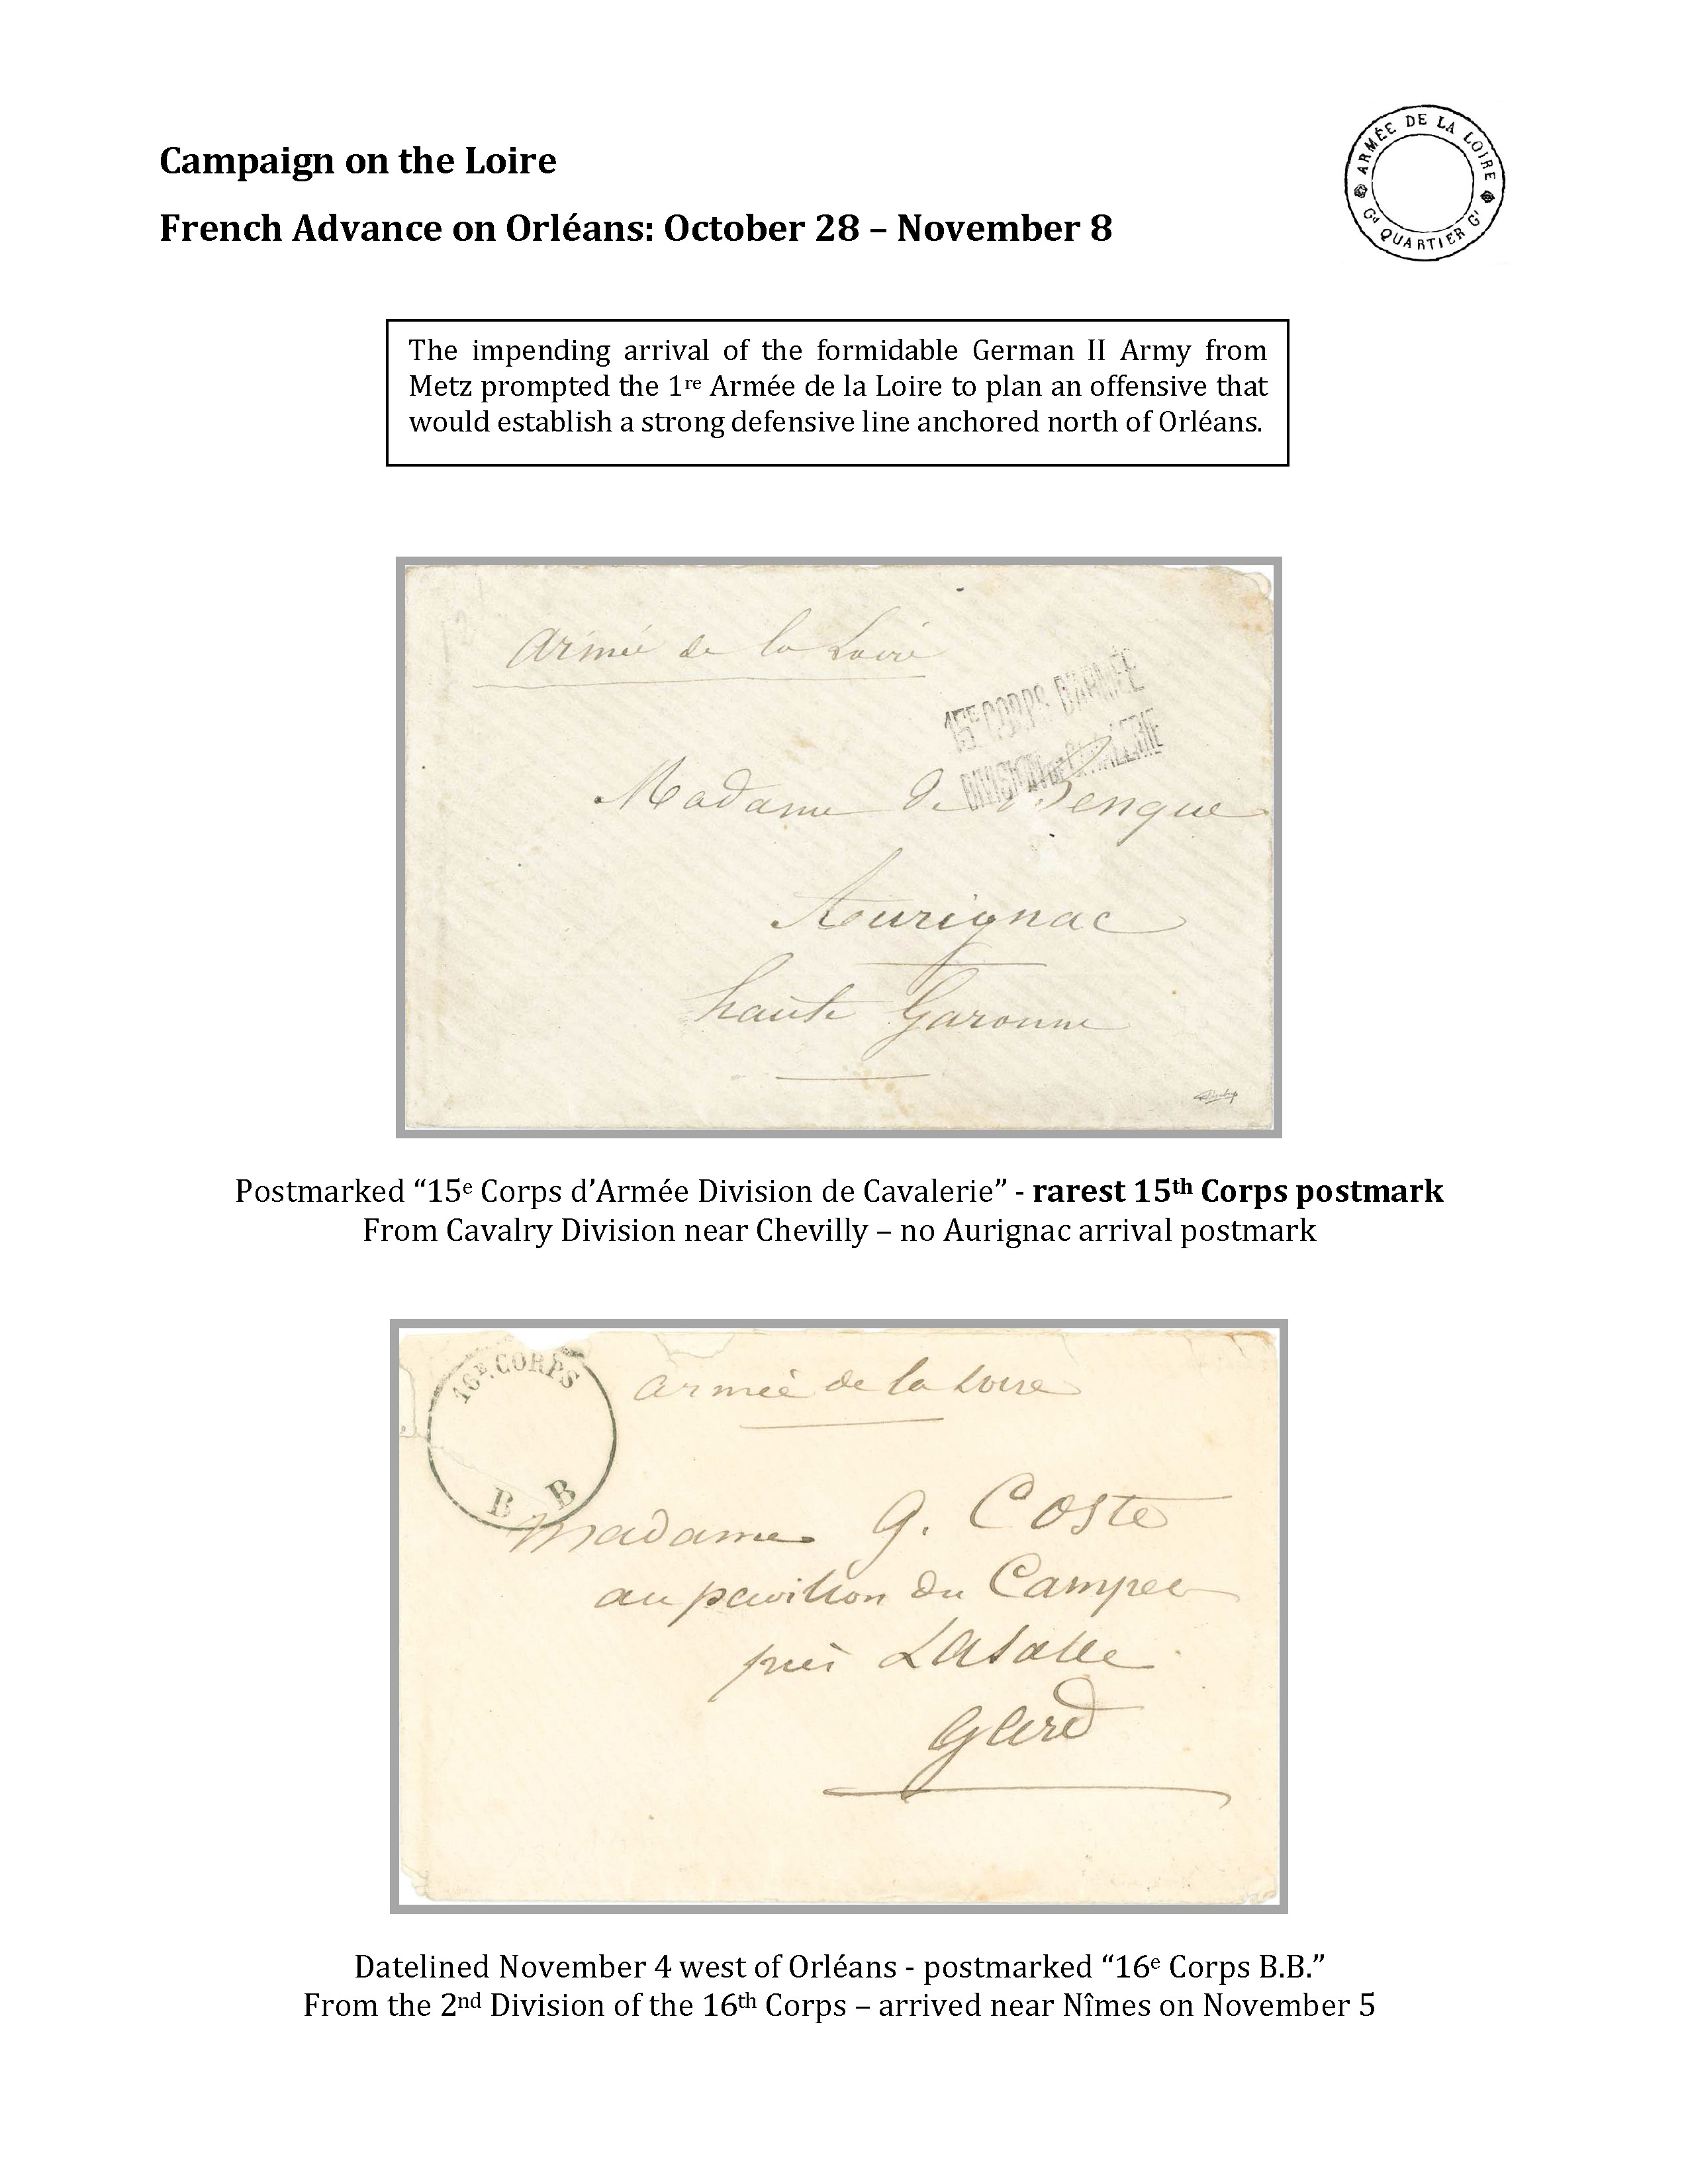 Campaign on the Loire
French Advance on Orléans: October 28 – November 8
ARMÉE DE LA LOIRE
Gd QUARTIER Gl
The impending arrival of the formidable German II Army from
Metz prompted the 1re Armée de la Loire to plan an offensive that
would establish a strong defensive line anchored north of Orléans.
Armée de la Loire
15E CORPS D'ARMÉE
DIVISION DE CAVALERIE
Madame de Benque
Aurignac
haute Garonne
Postmarked “15e Corps d’Armée Division de Cavalerie” - rarest 15th Corps postmark
From Cavalry Division near Chevilly – no Aurignac arrival postmark
16E CORPS
B B
Armée de la Loire
Madame G. Coste
au pavillon du
près Lasalle
Gard
Datelined November 4 west of Orléans - postmarked “16e Corps B.B.”
From the 2nd Division of the 16th Corps – arrived near Nîmes on November 5